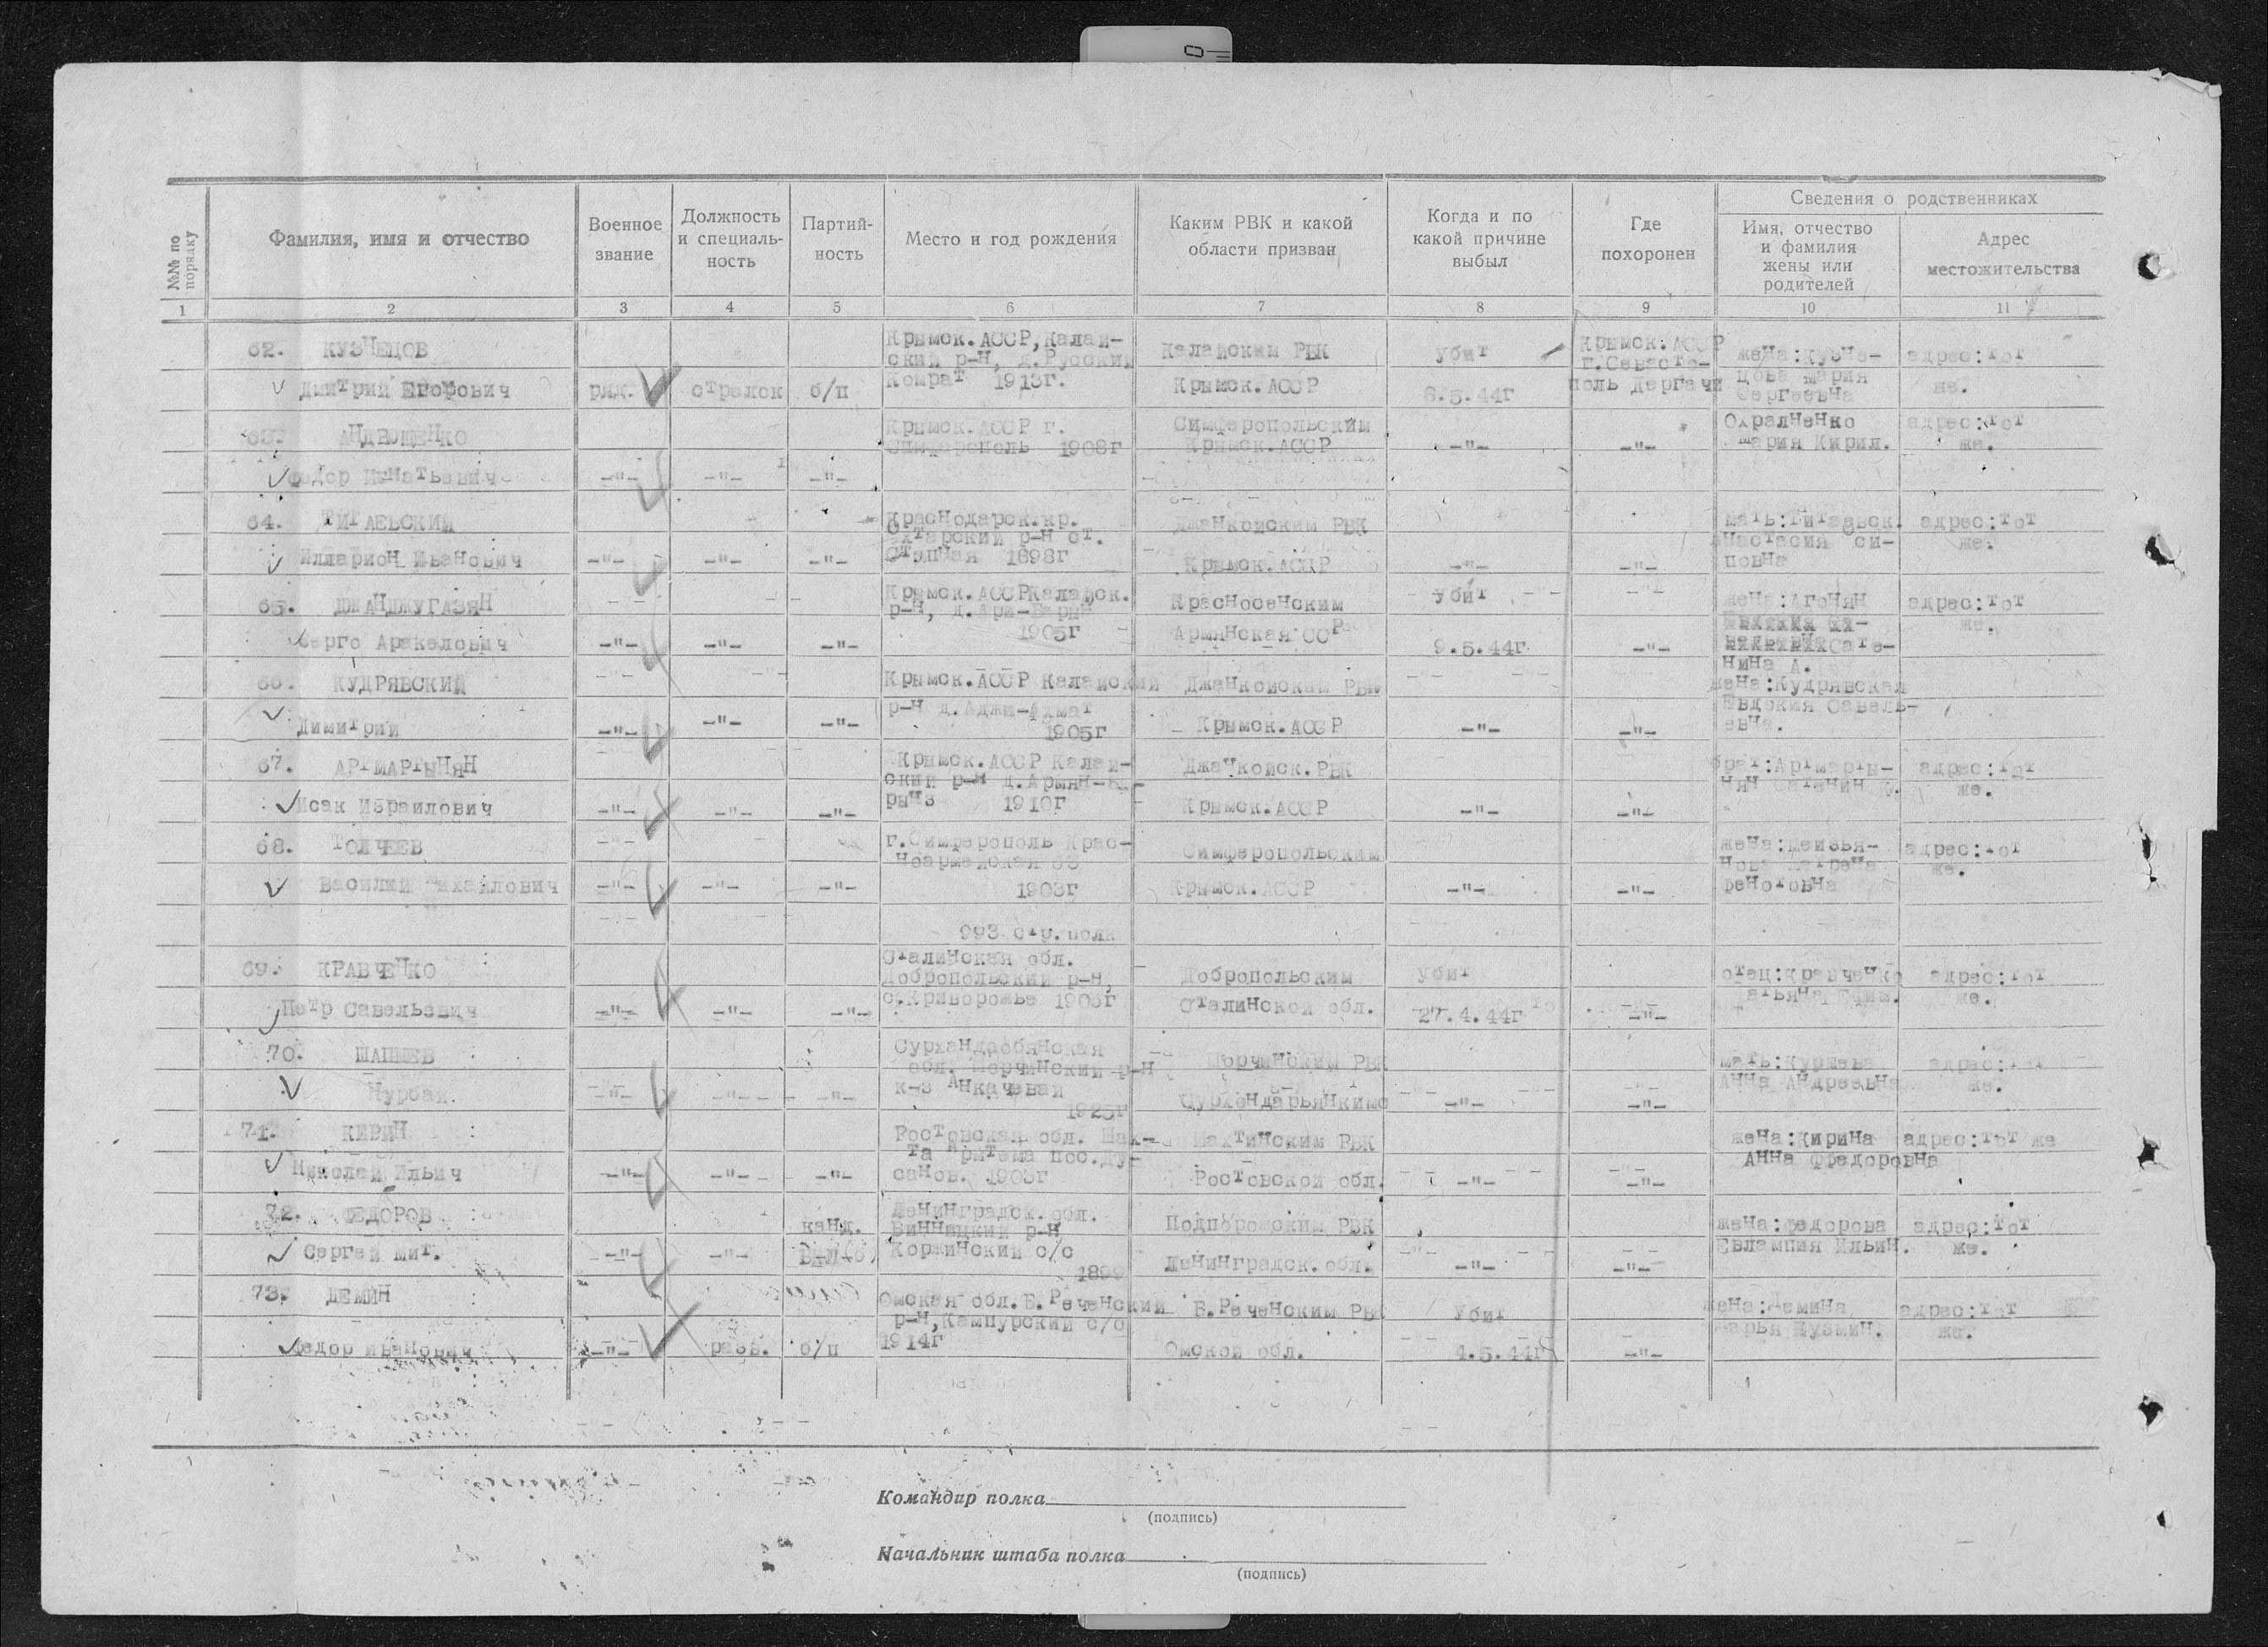 №№ по порядку
Фамилия, имя и отчество
Военное звание
Должность и специаль-ность
Партий-ность
Место и год рождения
Каким РВК и какой области призван
Когда и по какой причине выбыл
Где похоронен
Сведения о родственниках
Имя, отчество и фамилия жены или родителей
Адрес местожительства
1 2 3 4 5 6 7 8 9 10 11
62. КУЗНЕЦОВ Крымск.АССР, Калай- Калайским РВК убит Крымск.АССР жена:Кузне- адрес:тот
ский р-н, д.Русский г.Севасто-
Дмитрий Егорович ряд. стрелок б/п Комрат 1913г. Крымск.АССР 8.5.44г поль Дергачи цова Мария же.
Сергеевна
63. АНДРЮЩЕНКО Крымск.АССР г. Симферопольским Охралненко адрес:тот
Симферополь 1908г Крымск.АССР -"- -"- Мария Кирил. же.
Федор Игнатьевич -"- -"- -"-
64. ТИТАЕВСКИЙ Краснодарск.кр. Джанкойским РВК мать:Титаевск. адрес:тот
Ахтарский р-н ст. Анастасия Оси- же.
Илларион Иванович -"- -"- -"- Степная 1898г Крымск.АССР -"- -"- повна
65. ДЖАНДЖУГАЗЯН Крымск.АССР Калайск. Красносенским Убит жена:Агонян адрес:тот
р-н, д.Арм- же.
1905г Армянская ССР
Серго Аракелович -"- -"- -"- 9.5.44г -"- Сате-
нина А.
66. КУДРЯВСКИЙ Крымск.АССР Калайский Джанкойским РВК жена:Кудрявская
р-н д.Аджи-Ахмат Евдокия Савель-
Димитрий -"- -"- -"- 1905г Крымск.АССР -"- -"- евна.
67. АРТМАРТЫНЯН Крымск.АССР Калай- Джанкойск.РВК брат:Артмарты- адрес:тот
ский р-н д.Армян- нян же.
Исак Израилович -"- -"- -"- 1910г Крымск.АССР -"- -"-
68. ТОЛЧЕЕВ г.Симферополь Крас- Симферопольским жена: адрес:тот
ноармейская 68 же.
Василий Михайлович -"- -"- -"- 1903г Крымск.АССР -"- -"-
993 стр.полк
69. КРАВЧЕНКО Сталинская обл.
Добропольский р-н, Добропольским Убит отец:Кравченко адрес:тот
Петр Савельевич -"- -"- -"- с.Криворожье 1903г Сталинской обл. 27.4.44г -"- Татьяна Ефим. же.
70. ШАПШЕВ Сурхандообянская
обл. Шорчинский р-н Шорчинским РВК мать:Куршева адрес:тот
Нурбай. -"- -"- -"- к-з Анкачевай Анна Андреевна же.
1925г Сурхендарьянкимо -"- -"-
71. КИРИН Ростовская обл. Шах- Шахтинским РВК жена:Кирина адрес:тот же
та Артема пос.Ду- Анна Фредоровна
Николай Ильич -"- -"- -"- санов. 1903г Ростовской обл. -"- -"-
72. ФЕДОРОВ Ленинградск.обл.
канд. Виннацкий р-н Подпорожским РВК жена:Федорова адрес:тот
Сергей Мит. -"- -"- ВКП/б/ Коржинский с/с Евлампия Ильин. же.
1899 Ленинградск.обл. -"- -"-
73. ДЕМИН Омская обл.Б.Реченский Б.Реченским РВК Убит жена:Демина адрес:тот
р-н,Кампурский с/с Дарья Кузмин. же.
Федор Иванович -"- разв. б/п 1914г Омской обл. 4.5.44г -"-
Командир полка
(подпись)
Начальник штаба полка
(подпись)